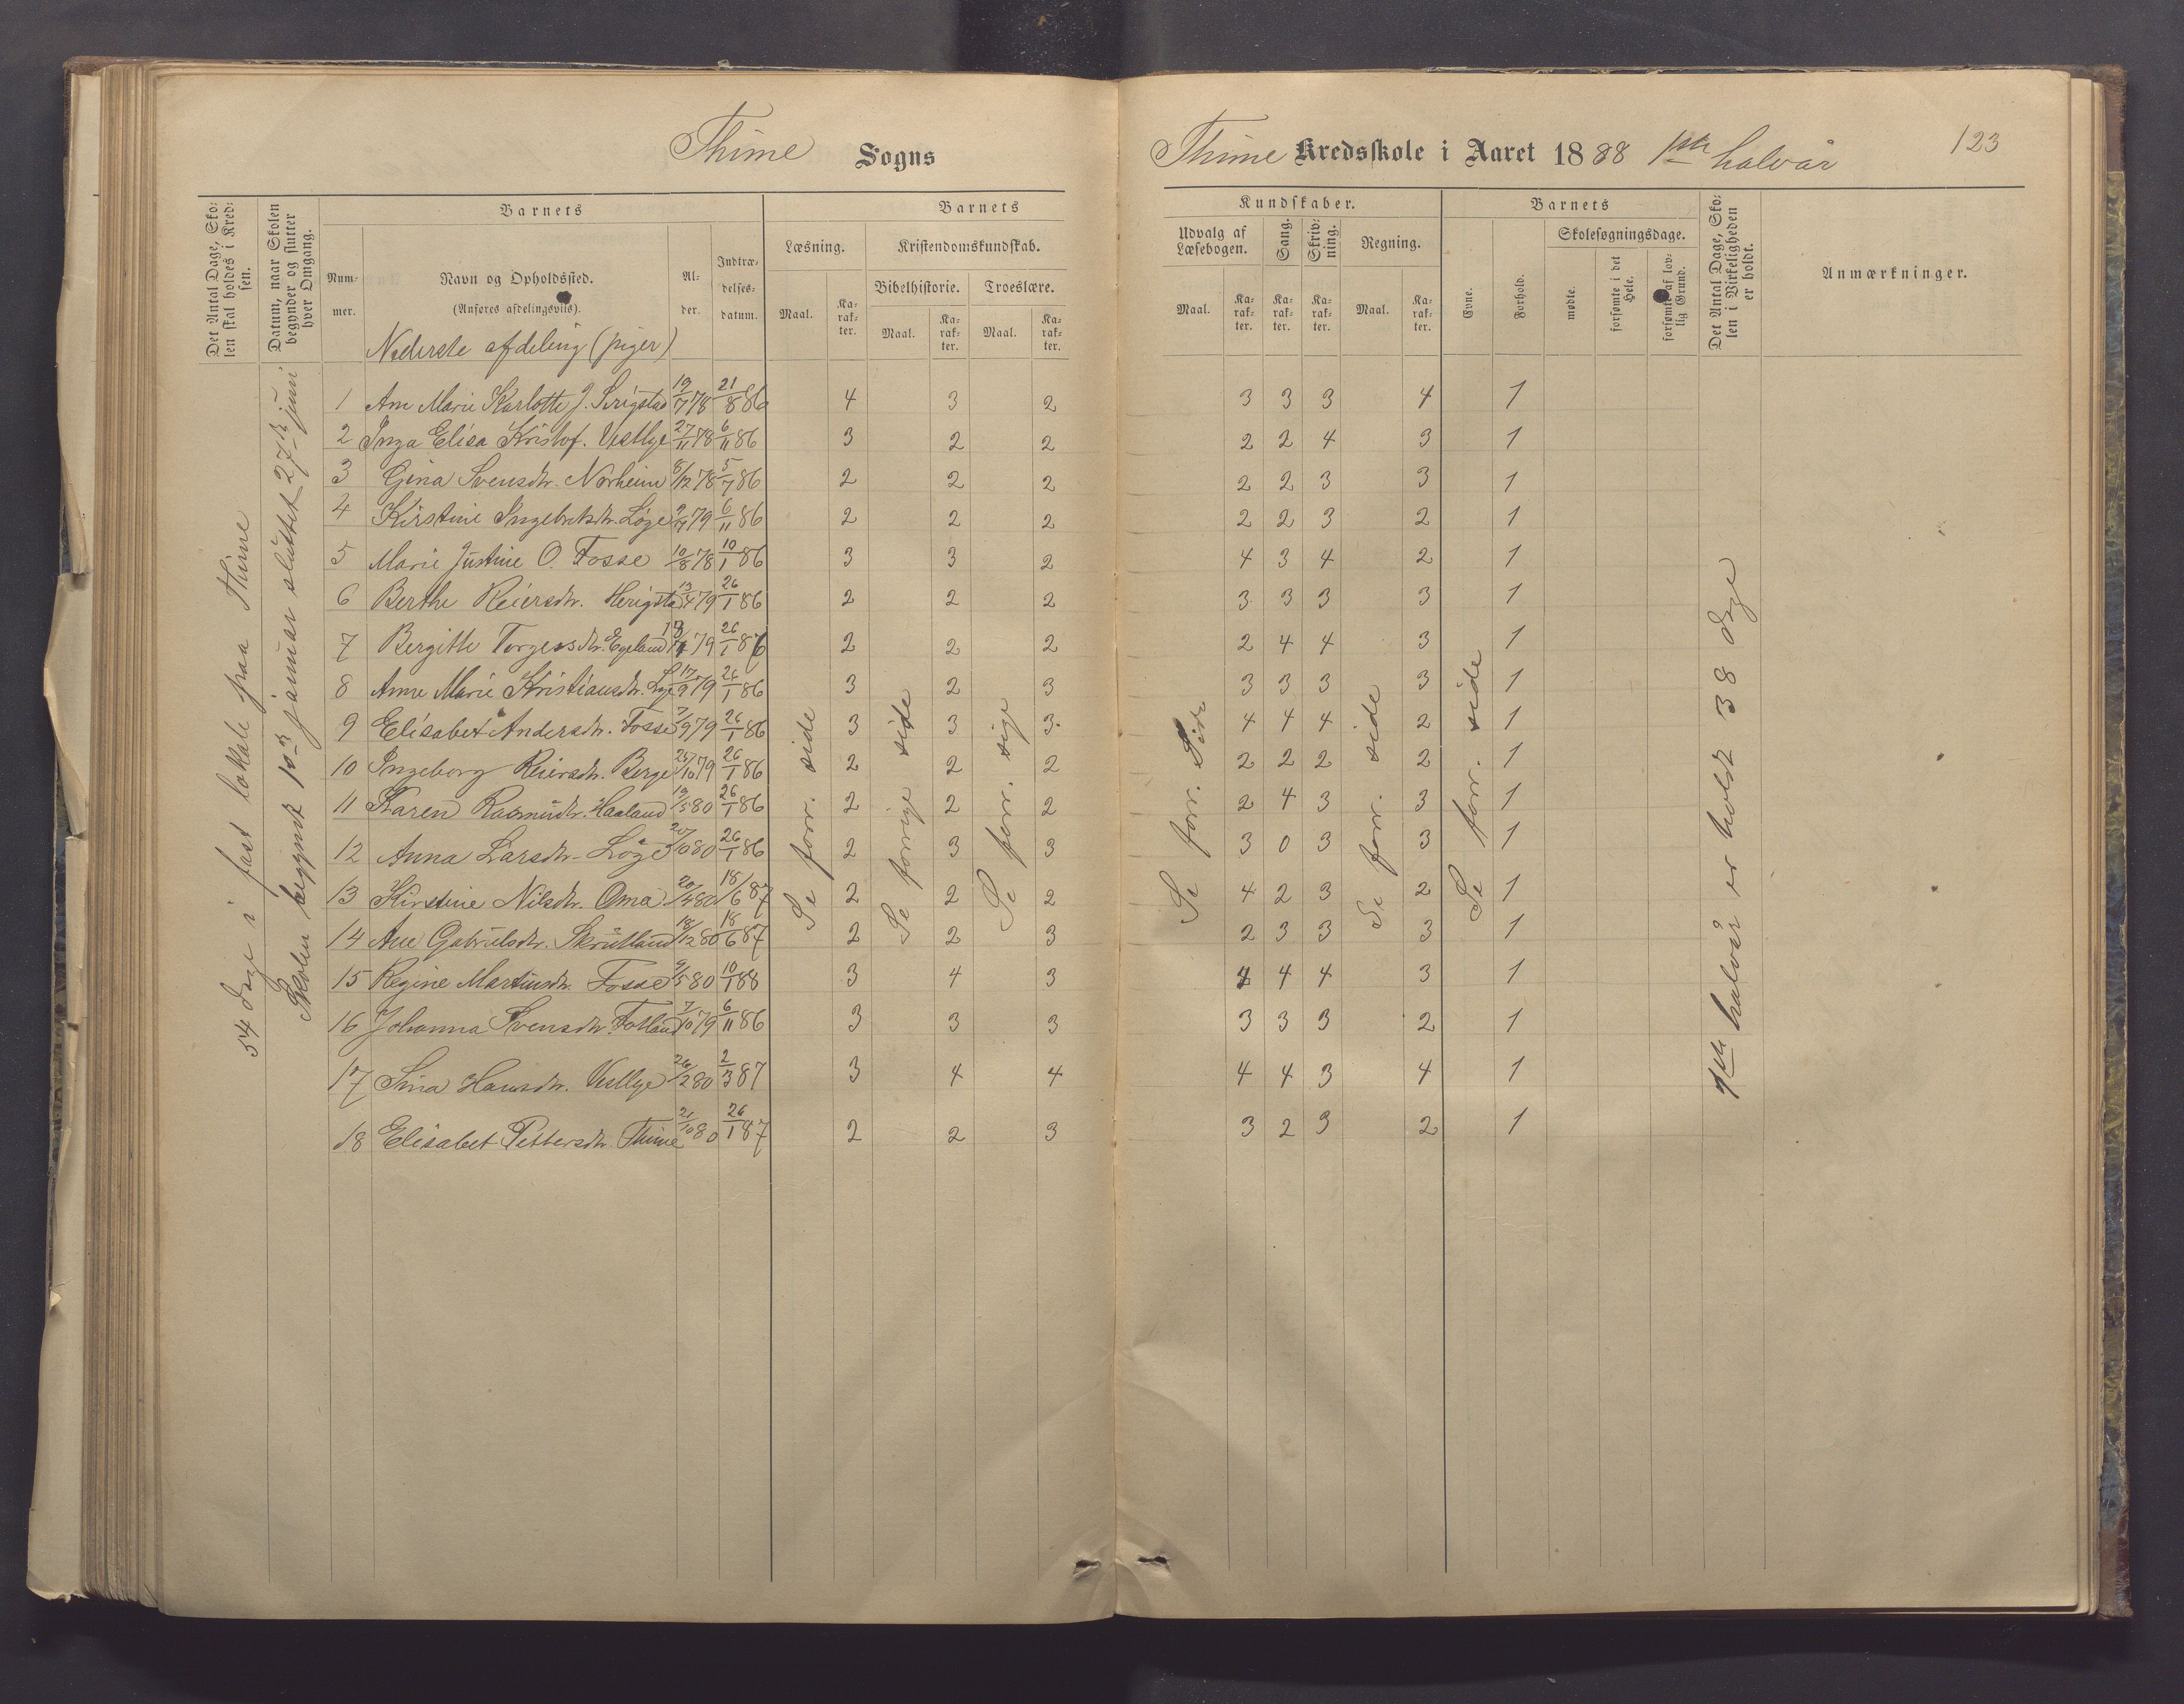 Thime Sogns
Thime Kredsskole i Aaret 1888 1ste halvår 123
Det Antal Dage, Skolen skal holdes i Kredsen.
Datum, naar Skolen begynder og slutter hver Omgang.
Barnets
Nummer.
Navn og Opholdssted.
(Anføres afdelingsviis).
Alder.
Indtrædelses-datum.
Barnets
Læsning.
Maal.
Karakter.
Kristendomskundskab.
Bibelhistorie.
Maal.
Karakter.
Troeslære.
Maal.
Karakter.
Kundskaber.
Udvalg af Læsebogen.
Maal.
Karakter.
Sang.
Karakter.
Skrivning.
Karakter.
Regning.
Maal.
Karakter.
Barnets
Evne.
Forhold.
Skolesøgningsdage.
mødte.
forsømte i det Hele.
forsømte af lovlig Grund.
Det Antal Dage, Skolen i Virkeligheden er holdt.
Anmærkninger.
Nederste afdeling (piger)
54 dage i fast lokale paa Thime
Skolen begynt 10de januar sluttet 27de juni
1 Ane Marie Karlotte J. Serigstad 19/7 78 21/8 86 4 3 2 3 3 3 4 1
2 Inga Elisa Kristof. Vestlye 27/11 78 6/11 86 3 2 2 2 2 4 3 1
3 Gina Svensdtr. Norheim 8/12 78 5/7 86 2 2 2 2 2 3 3 1
4 Kirstine Ingebretsdtr. Løge 79 6/11 86 2 2 2 2 2 3 2 1
5 Marie Justine O. Fosse 10/8 78 10/1 86 3 3 2 4 3 4 2 1
6 Berthe Reiersdtr. Herigstad 13/4 79 26/1 86 2 2 2 3 3 3 3 1
7 Bergitte Torgersdtr. Egeland 79 26/1 86 2 2 2 2 4 4 3 1
8 Anne Marie Kristiansdtr. Lye 17/9 79 26/1 86 3 2 3 3 3 3 3 1
9 Elisabet Andersdtr. Fosse 7/9 79 26/1 86 3 3 3 4 4 4 2 1
10 Ingeborg Reiersdtr. Berge 25/10 79 26/1 86 2 2 2 2 2 2 2 1
11 Karen Rasmusdtr. Haaland 19/5 80 26/1 86 2 2 2 2 4 3 3 1
12 Anna Larsdtr. Løge 80 26/1 86 2 3 3 3 0 3 3 1
13 Kirstine Nilsdtr. Oma 20/4 80 18/6 87 2 2 2 4 2 3 2 1
14 Ane Gabrielsdtr. Skrutland 18/12 80 18/6 87 2 2 3 2 3 3 3 1
15 Regine Martinsdtr. Fosse 9/5 80 10/1 88 3 4 3 4 4 4 3 1
16 Johanna Svensdtr. Fotland 7/10 79 6/11 86 3 3 3 3 3 3 2 1
17 Sina Hansdtr. Vestlye 26/12 80 2/3 87 3 4 4 4 4 3 4 1
18 Elisabet Pettersdtr. Thime 21/10 80 26/1 87 2 2 3 3 2 3 2 1
Se forr. side
Se forrige side
Se forr. sige
Se forr. Side
Se forr. side
Se forr. side
1ste halvår er holdt 38 dage